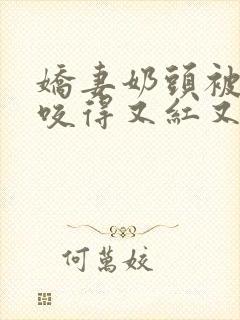 嬌妻奶頭被
咬得又紅又
何萬姣